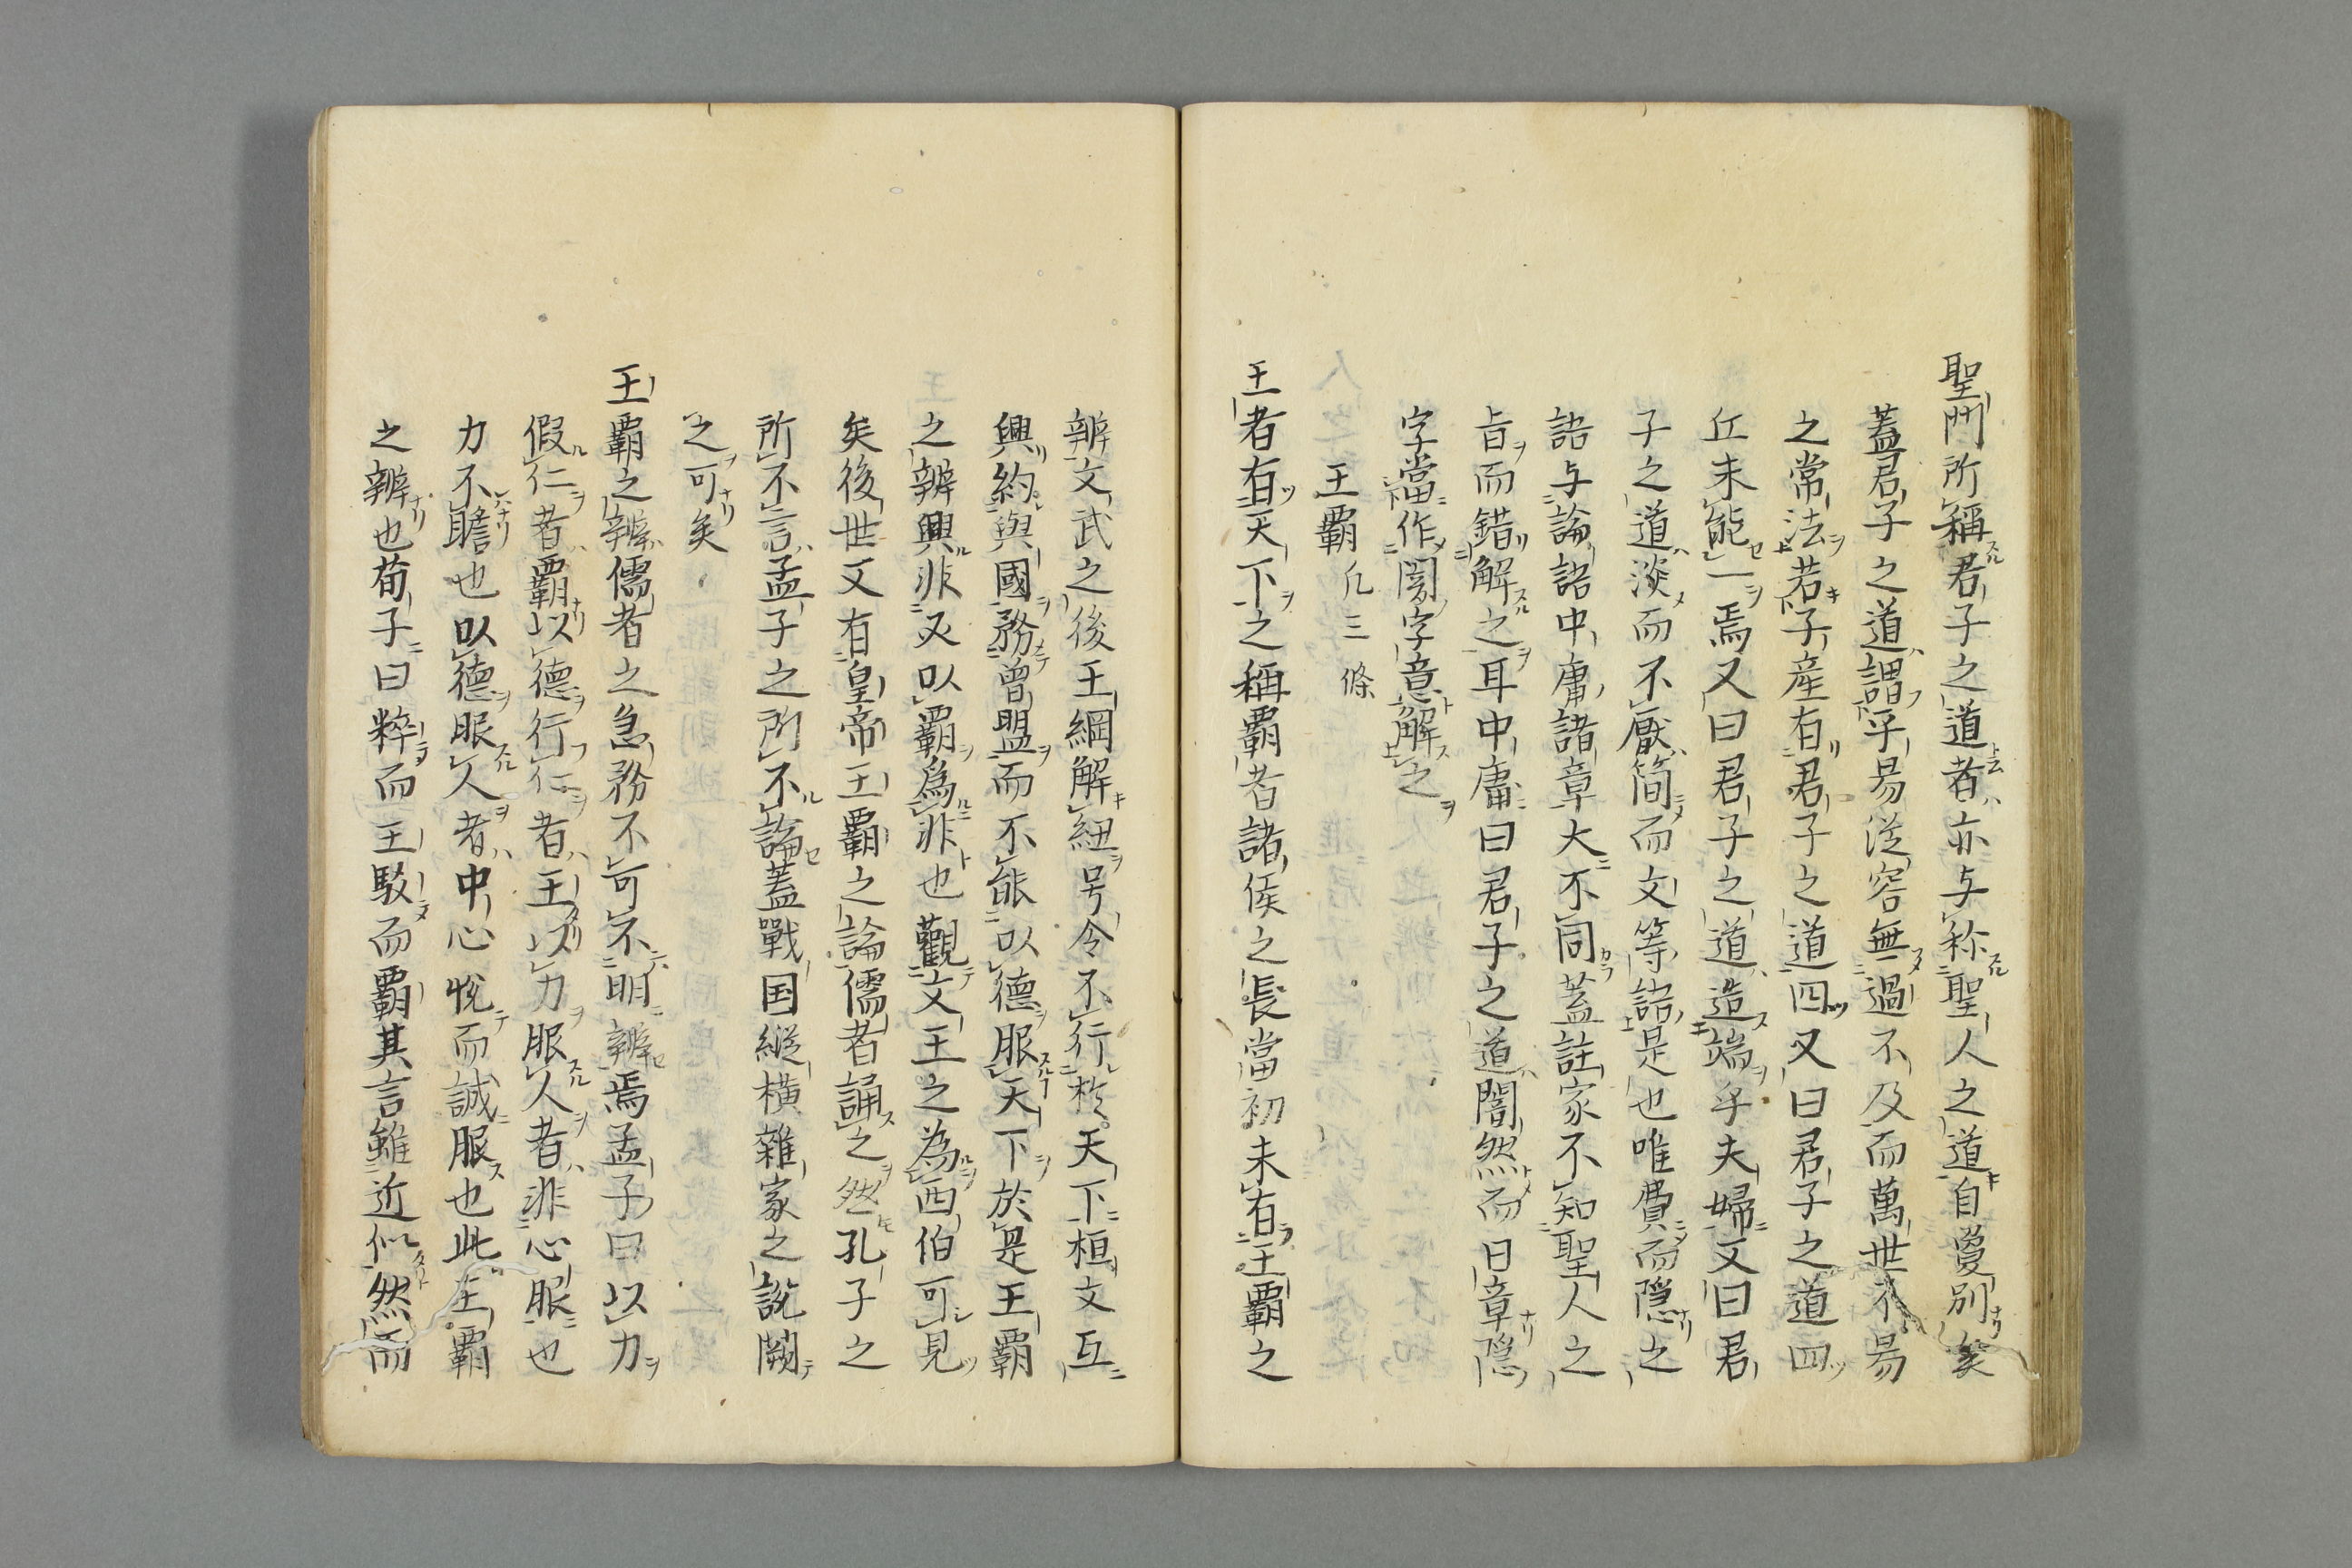 聖門所稱君子之道者亦与称聖人之道自夐別矣
蓋君子之道謂平易従容無過不及而萬世不易
之常法若子産有君子之道四又曰君子之道四
丘未能一焉又曰君子之道造端乎夫婦又曰君
子之道淡而不厭簡而文等語是也唯費而隠之
語与論語中庸諸章大不同蓋註家不知聖人之
旨而錯解之耳中庸曰君子之道闇然而日章隠
字當作闇字意解之
王覇凢三條
王者有天下之稱覇者諸侯之長當初未有王覇之
辨文武之後王綱解紐号令不行於天下桓文互
興約與國務曽盟而不能以德服天下於是王覇
之辨興非必以覇為非也觀文王之為西伯可見
矣後世又有皇帝王覇之論儒者誦之然孔子之
所不言孟子之所不論蓋戰国縦横雜家之說闕
之可矣
王覇之辨儒者之急務不可不明辨焉孟子曰以力
假仁者覇以德行仁者王以力服人者非心服也
力不贍也以德服人者中心悅而誠服也此王覇
之辨也荀子曰粹而王駁而覇其言雖近似然而